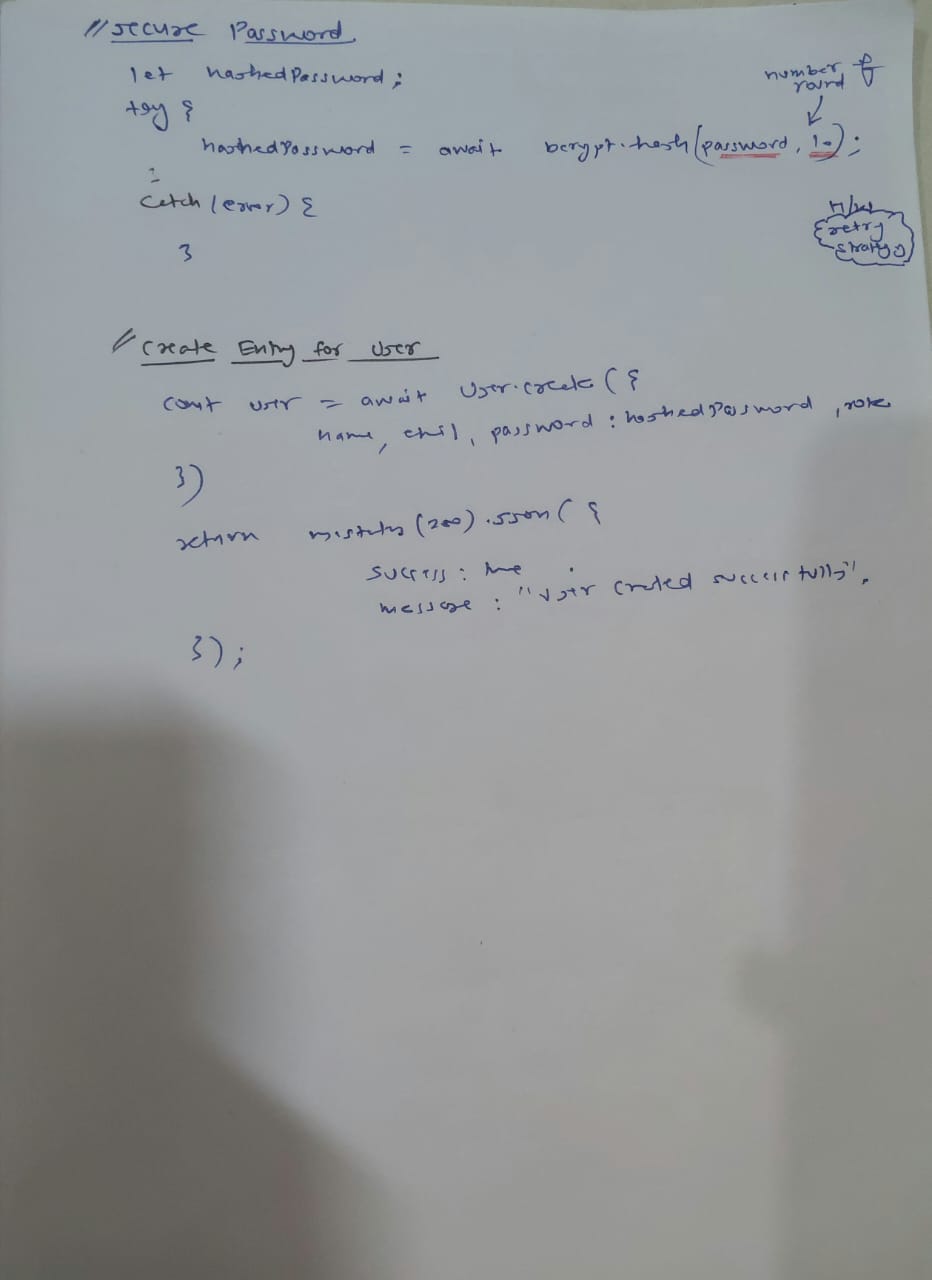 // Secure Password
let hashedPassword;
number of
round
try {
hashedPassword = await bcrypt.hash(password, 10);
}
catch (error) {
}
H/w
retry
stratgy
// Create Entry for User
const user = await User.create ({
name, email, password : hashedPassword , role
})
return res.status (200) .json ( {
success : true
message : "User created successfully",
});